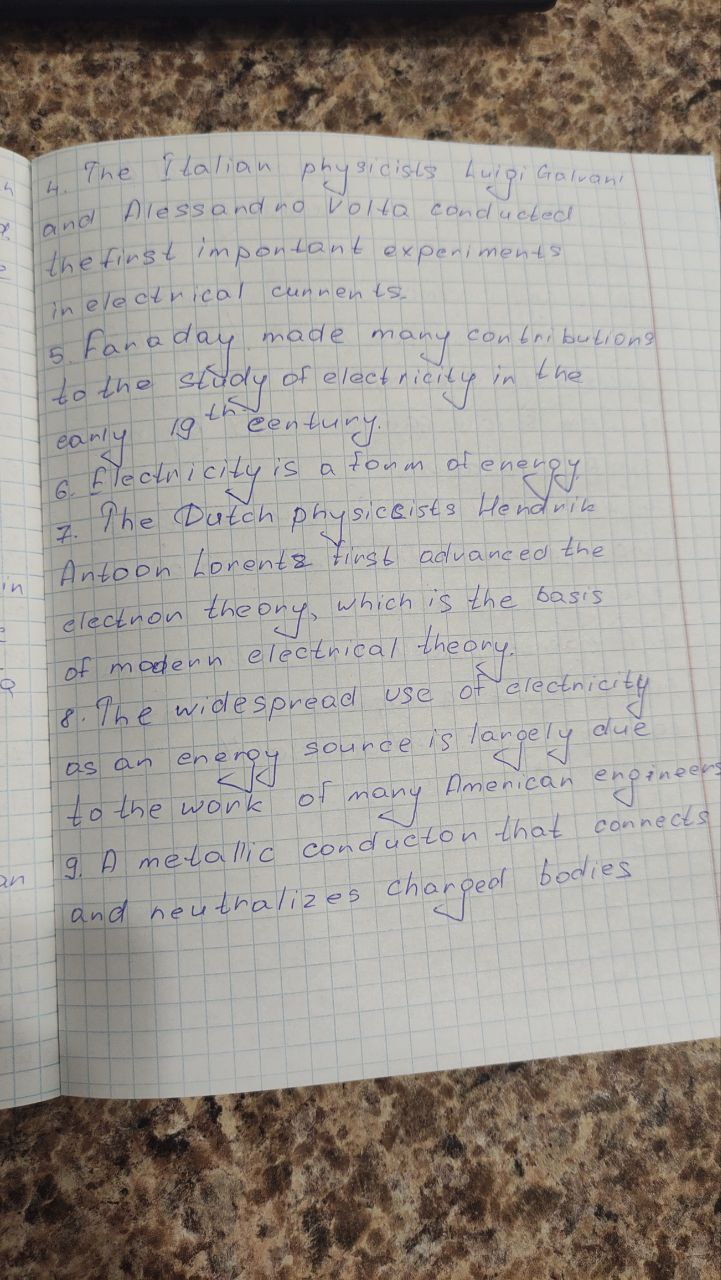 4. The Italian physicists Luigi Galvani
and Alessandro Volta conducted
the first important experiments
in electrical currents.
5. Faraday made many contributions
to the study of electricity in the
early 19th century.
6. Electricity is a form of energy
7. The Dutch physicsists Hendrik
Antoon Lorentz first advanced the
electron theory, which is the basis
of modern electrical theory.
8. The widespread use of electricity
as an energy source is largely due
to the work of many American engineers
9. A metallic conductor that connects
and neutralizes charged bodies